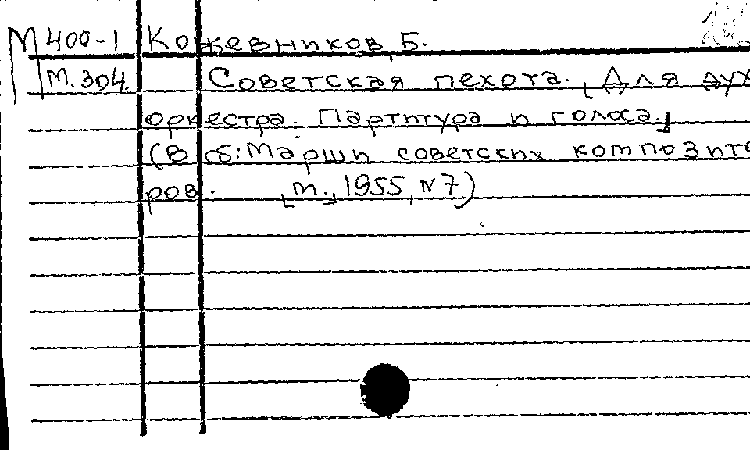 М 400-1 Кожевников, Б.
М.304 Советская пехота. [Для дух
оркестра. Партитура и голоса.]
(В сб: Марши советских композито
ров. [М., 1955, №7)